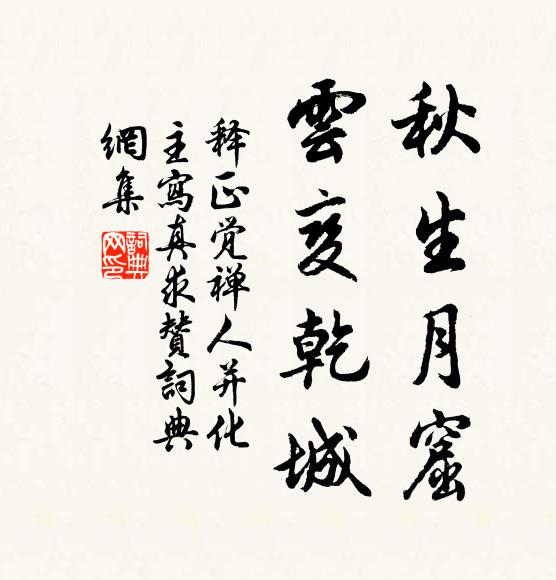 秋生月窟
雲变乾城
释正觉禅人并化
主寫真求赞詞典
網集
詞典網印